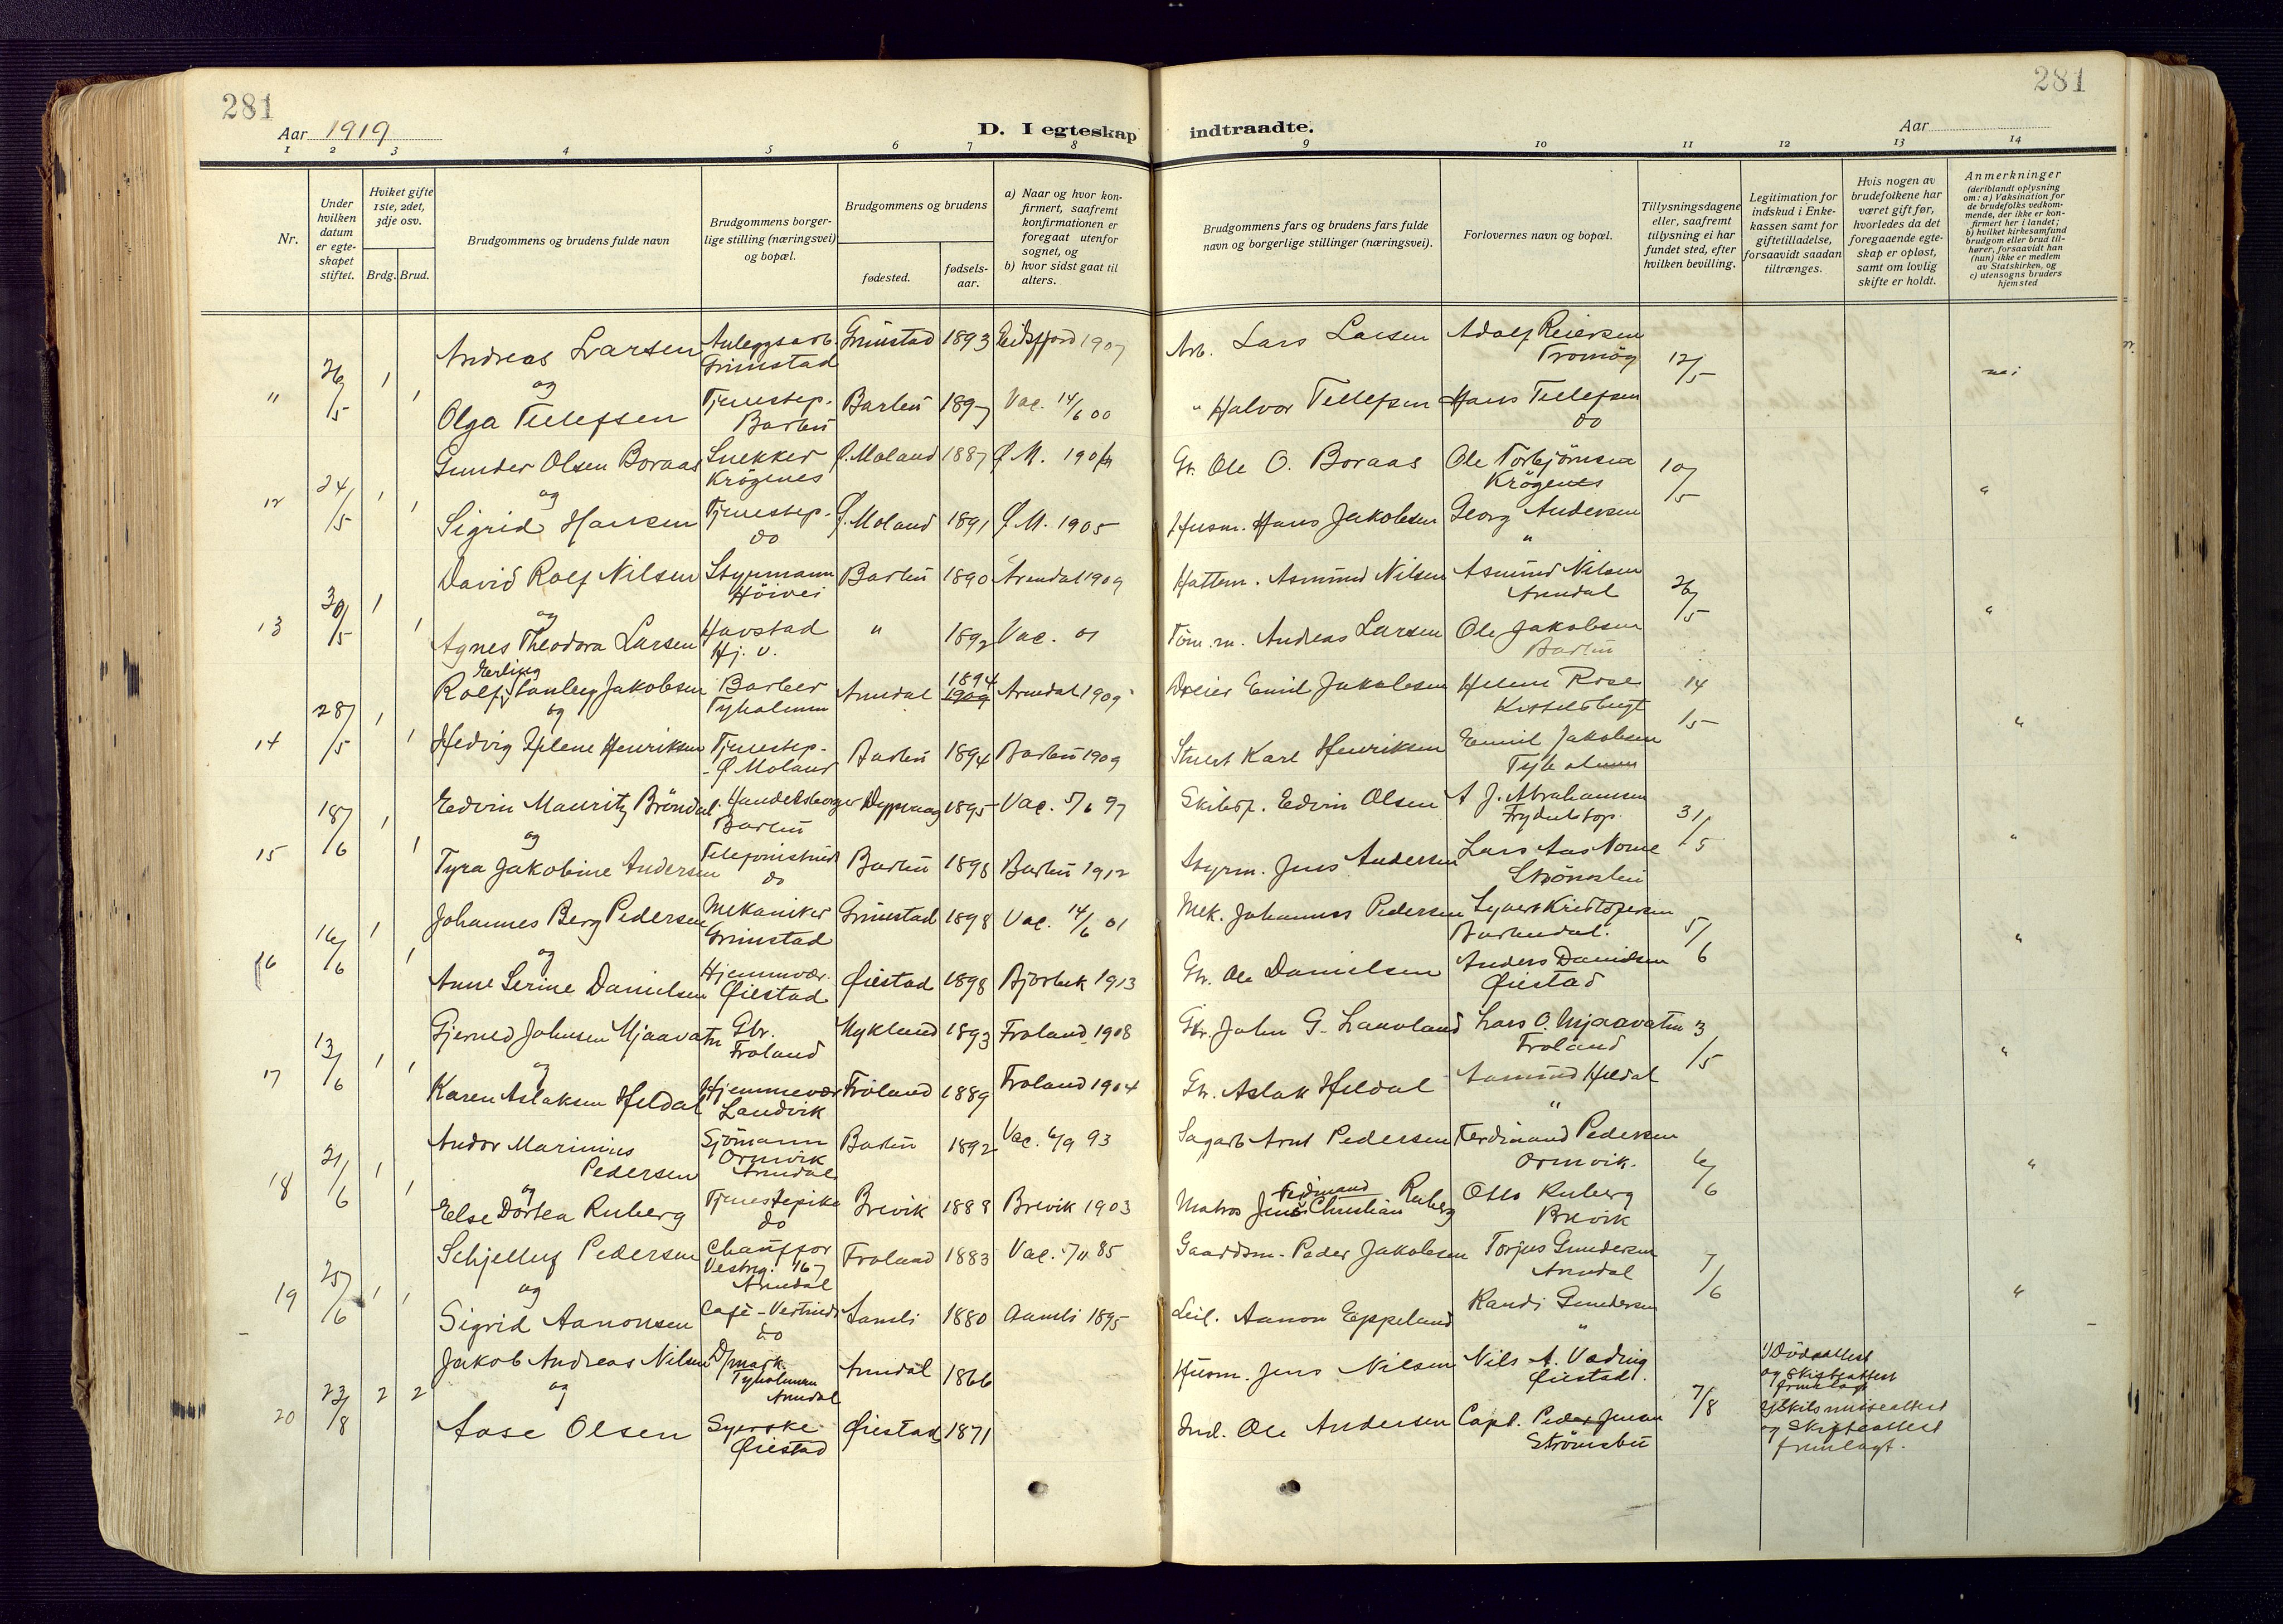 281
281
Aar 1919
D. I egteskap indtraadte.
Aar
1 2 3 4 5 6 7 8 9 10 11 12 13 14
Nr.
Under hvilken datum er egteskapet stiftet.
Hviket gifte 1ste, 2det, 3dje osv.
Brdg. Brud.
Brudgommens og brudens fulde navn
Brudgommens borgerlige stilling (næringsvei) og bopæl.
Brudgommens og brudens
fødested.
fødselsaar.
a) Naar og hvor konfirmert, saafremt konfirmationen er foregaat utenfor sognet, og
b) hvor sidst gaat til alters.
Brudgommens fars og brudens fars fulde navn og borgerlige stillinger (næringsvei).
Forlovernes navn og bopæl.
Tillysningsdagene eller, saafremt tillysning ei har fundet sted, efter hvilken bevilling.
Legitimation for indskud i Enkekassen samt for giftetilladelse, forsaavidt saadan tiltrænges.
Hvis nogen av brudefolkene har været gift før, hvorledes da det foregaaende egteskap er opløst, samt om lovlig skifte er holdt.
Anmerkninger
(deriblandt oplysning om: a) Vaksination for de brudefolks vedkommende, der ikke er konfirmert her i landet;
b) hvilket kirkesamfund brudgom eller brud tilhører, forsaavidt han (hun) ikke er medlem av Statskirken, og
c) utensogns bruders hjemsted
Andreas Larsen Anleggsarb. Grimstad 1893 Eidsfjord 1907 Arb. Lars Larsen Adolf Reiersen
Grimstad Tromøy
11 26/5 1 1 og 12/5 nei
Olga Tellefsen Tjenestep. Barbu 1897 Vac. 14/6 00 " Halvor Tellefsen Hans Tellefsen
Barbu do
Gunder Olsen Boraas Snekker Ø. Moland 1887 Ø. M. 190 Gr. Ole O. Boraas Ole Torbjörnsen
Krögenes Krögenes
12 24/5 1 1 og 10/5 "
Sigrid Hansen Tjenestep. Ø. Moland 1891 Ø. M. 1905 Husm. Hans Jakobsen Georg Andersen
do "
David Rolf Nilsen Styrmann Barbu 1890 Arendal 1909 Hattem. Asmund Nilsen Asmund Nilsen
Höivei Arendal
13 30/5 1 1 og 26/5 "
Agnes Theodora Larsen Havstad " 1892 Vac. 01 Töm.m. Andreas Larsen Ole Jakobsen
Hj. v. Barbu
Erling 1894
Rolf Lauley Jakobsen Barber Arendal 1909 Arendal 1909 Dreier Emil Jakobsen Helene Rose
Tyholmen Kittelsbugt
14 28/5 1 1 og 14/5 "
Hedvig Helene Henriksen Tjenestep. Barbu 1894 Barbu 1909 Stuert Karl Henriksen Emil Jakobsen
Ø Moland Tyholmen
Edvin Mauritz Bröndal Handelsborger Dypvaag 1895 Vac. 5/6 97 Skibsf. Edvin Olsen A J. Abrahamsen
Barbu Frydentop.
15 18/6 1 1 og 31/5 "
Tyra Jakobine Andersen Telefonistinde Barbu 1898 Barbu 1912 Styrm. Jens Andersen Lars Aas Norne
do Strömsbu
Johannes Berg Pedersen Mekaniker Grimstad 1898 Vac. 14/6 01 Mek. Johannes Pedersen Syvert Kristofersen
Grimstad Barbudal.
16 16/6 1 1 og 5/6 "
Anne Serine Danielsen Hjemmevær. Øiestad 1898 Bjorbek 1913 Gr. Ole Danielsen Anders Danielsen
Øiestad Øiestad
Gjerned Johnsen Mjaavatn Gbr. Mykland 1893 Froland 1908 Gbr. John G. Lauvland Lars O. Mjaavatn
Froland Froland
17 13/6 1 1 og 3/5 "
Karen Aslaksen Heldal Hjemmevær Froland 1889 Froland 1904 Gr. Aslak Heldal Aamund Heldal
Landvik "
Andor Marinius Sjömann Barbu 1892 Vac. 6/9 93 Sagarb Arnt Pedersen Ferdinand Pedersen
Pedersen Ormvik Arendal Ormvik.
18 21/6 1 1 og 6/6 "
Ferdinand
Else Dortea Ruberg Tjenestepike Brevik 1888 Brevik 1903 Matros Jens Christian Ruberg Otto Ruberg
do Brevik
Schjelluf Pedersen Chauffør Froland 1883 Vac. 7/11 85 Gaardsm. Peder Jakobsen Torjus Gundersen
Vestreg. 167 Arendal Arendal
19 25/6 1 1 og 7/6 "
Sigrid Aanonsen Café-Vertinde Aamli 1880 Aamli 1895 Leil. Aanon Eppeland Randi Gundersen
do "
Jakob Andreas Nilsen D/mask. Arendal 1866 Husm. Jens Nilsen Nils A. Vedring
Tyholmen Arendal Øiestad.
20 23/8 2 2 og 7/8
Aase Olsen Syerske Øiestad 1871 Ind. Ole Andersen Capt. Peder Jensen
Øiestad Strömsbu
1) Dödsattest
og Skifteattest
fremlagt
2) Skilsmisseattest
og Skifteattest
fremlagt.